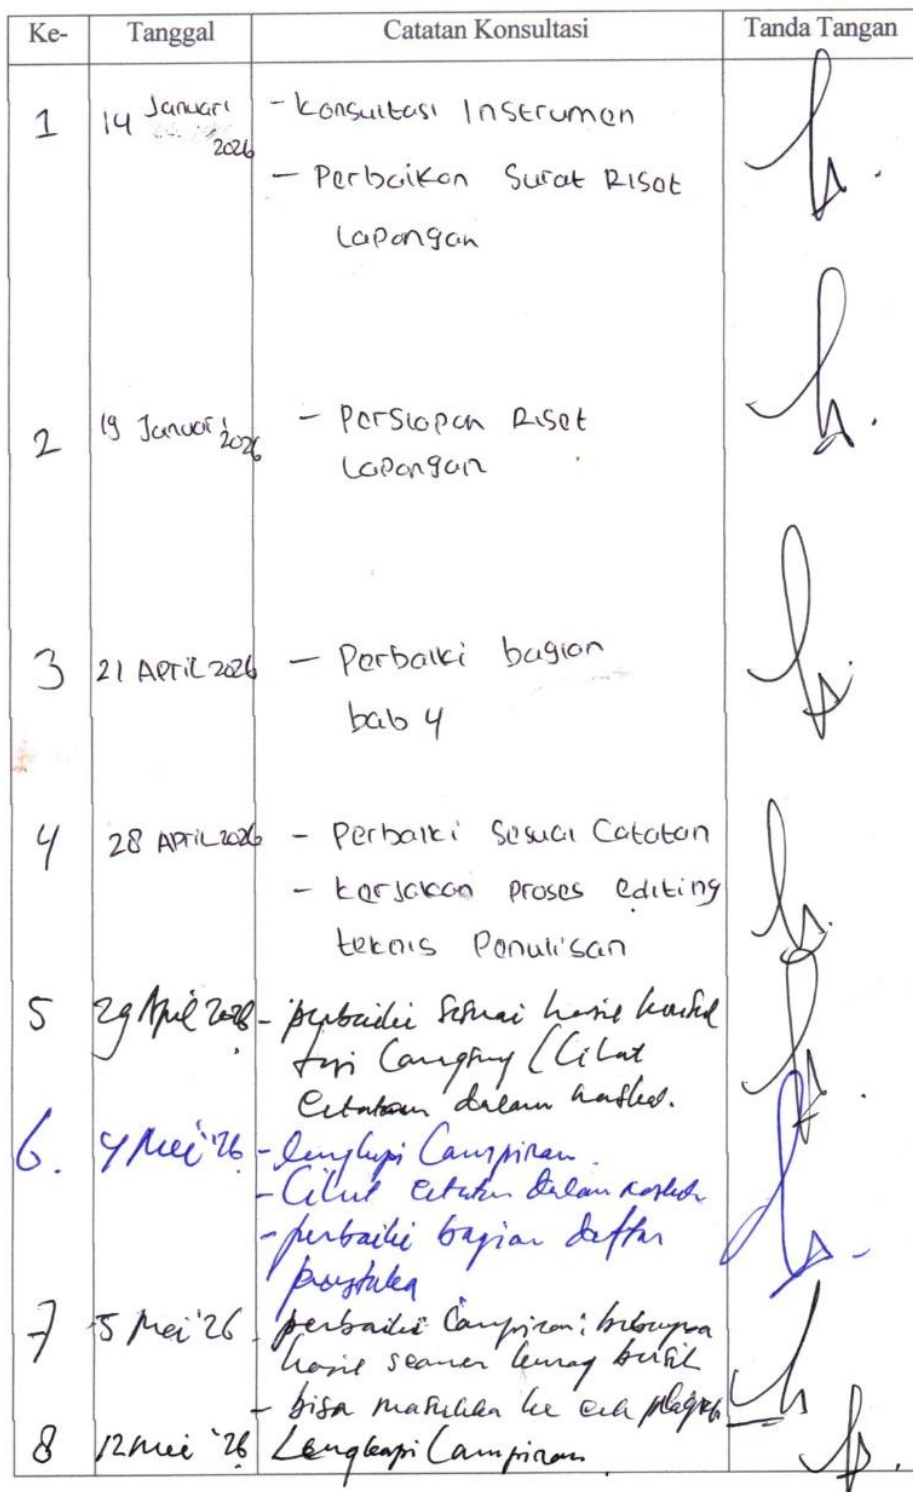 Ke- Tanggal Catatan Konsultasi Tanda Tangan
1 14 Januari 2026 - Konsultasi Instrumen
- Perbaikan Surat Riset
Lapangan
2 19 Januari 2026 - Persiapan Riset
Lapangan
3 21 April 2026 - Perbaiki bagian
bab 4
4 28 April 2026 - Perbaiki Sesuai Catatan
- kerjakan proses editing
teknis Penulisan
5 29 April 2026 - perbaiki sesuai hasil
(Lihat
Catatan dalam naskah.
6. 4 Mei '26 - lengkapi Lampiran.
- Lihat catatan dalam naskah
- perbaiki bagian daftar
pustaka
7 5 Mei '26 - perbaiki Lampiran: beberapa
hasil scanner kurang bersih
- bisa masukkan ke cek plagiasi
8 12 Mei '26 Lengkapi Lampiran